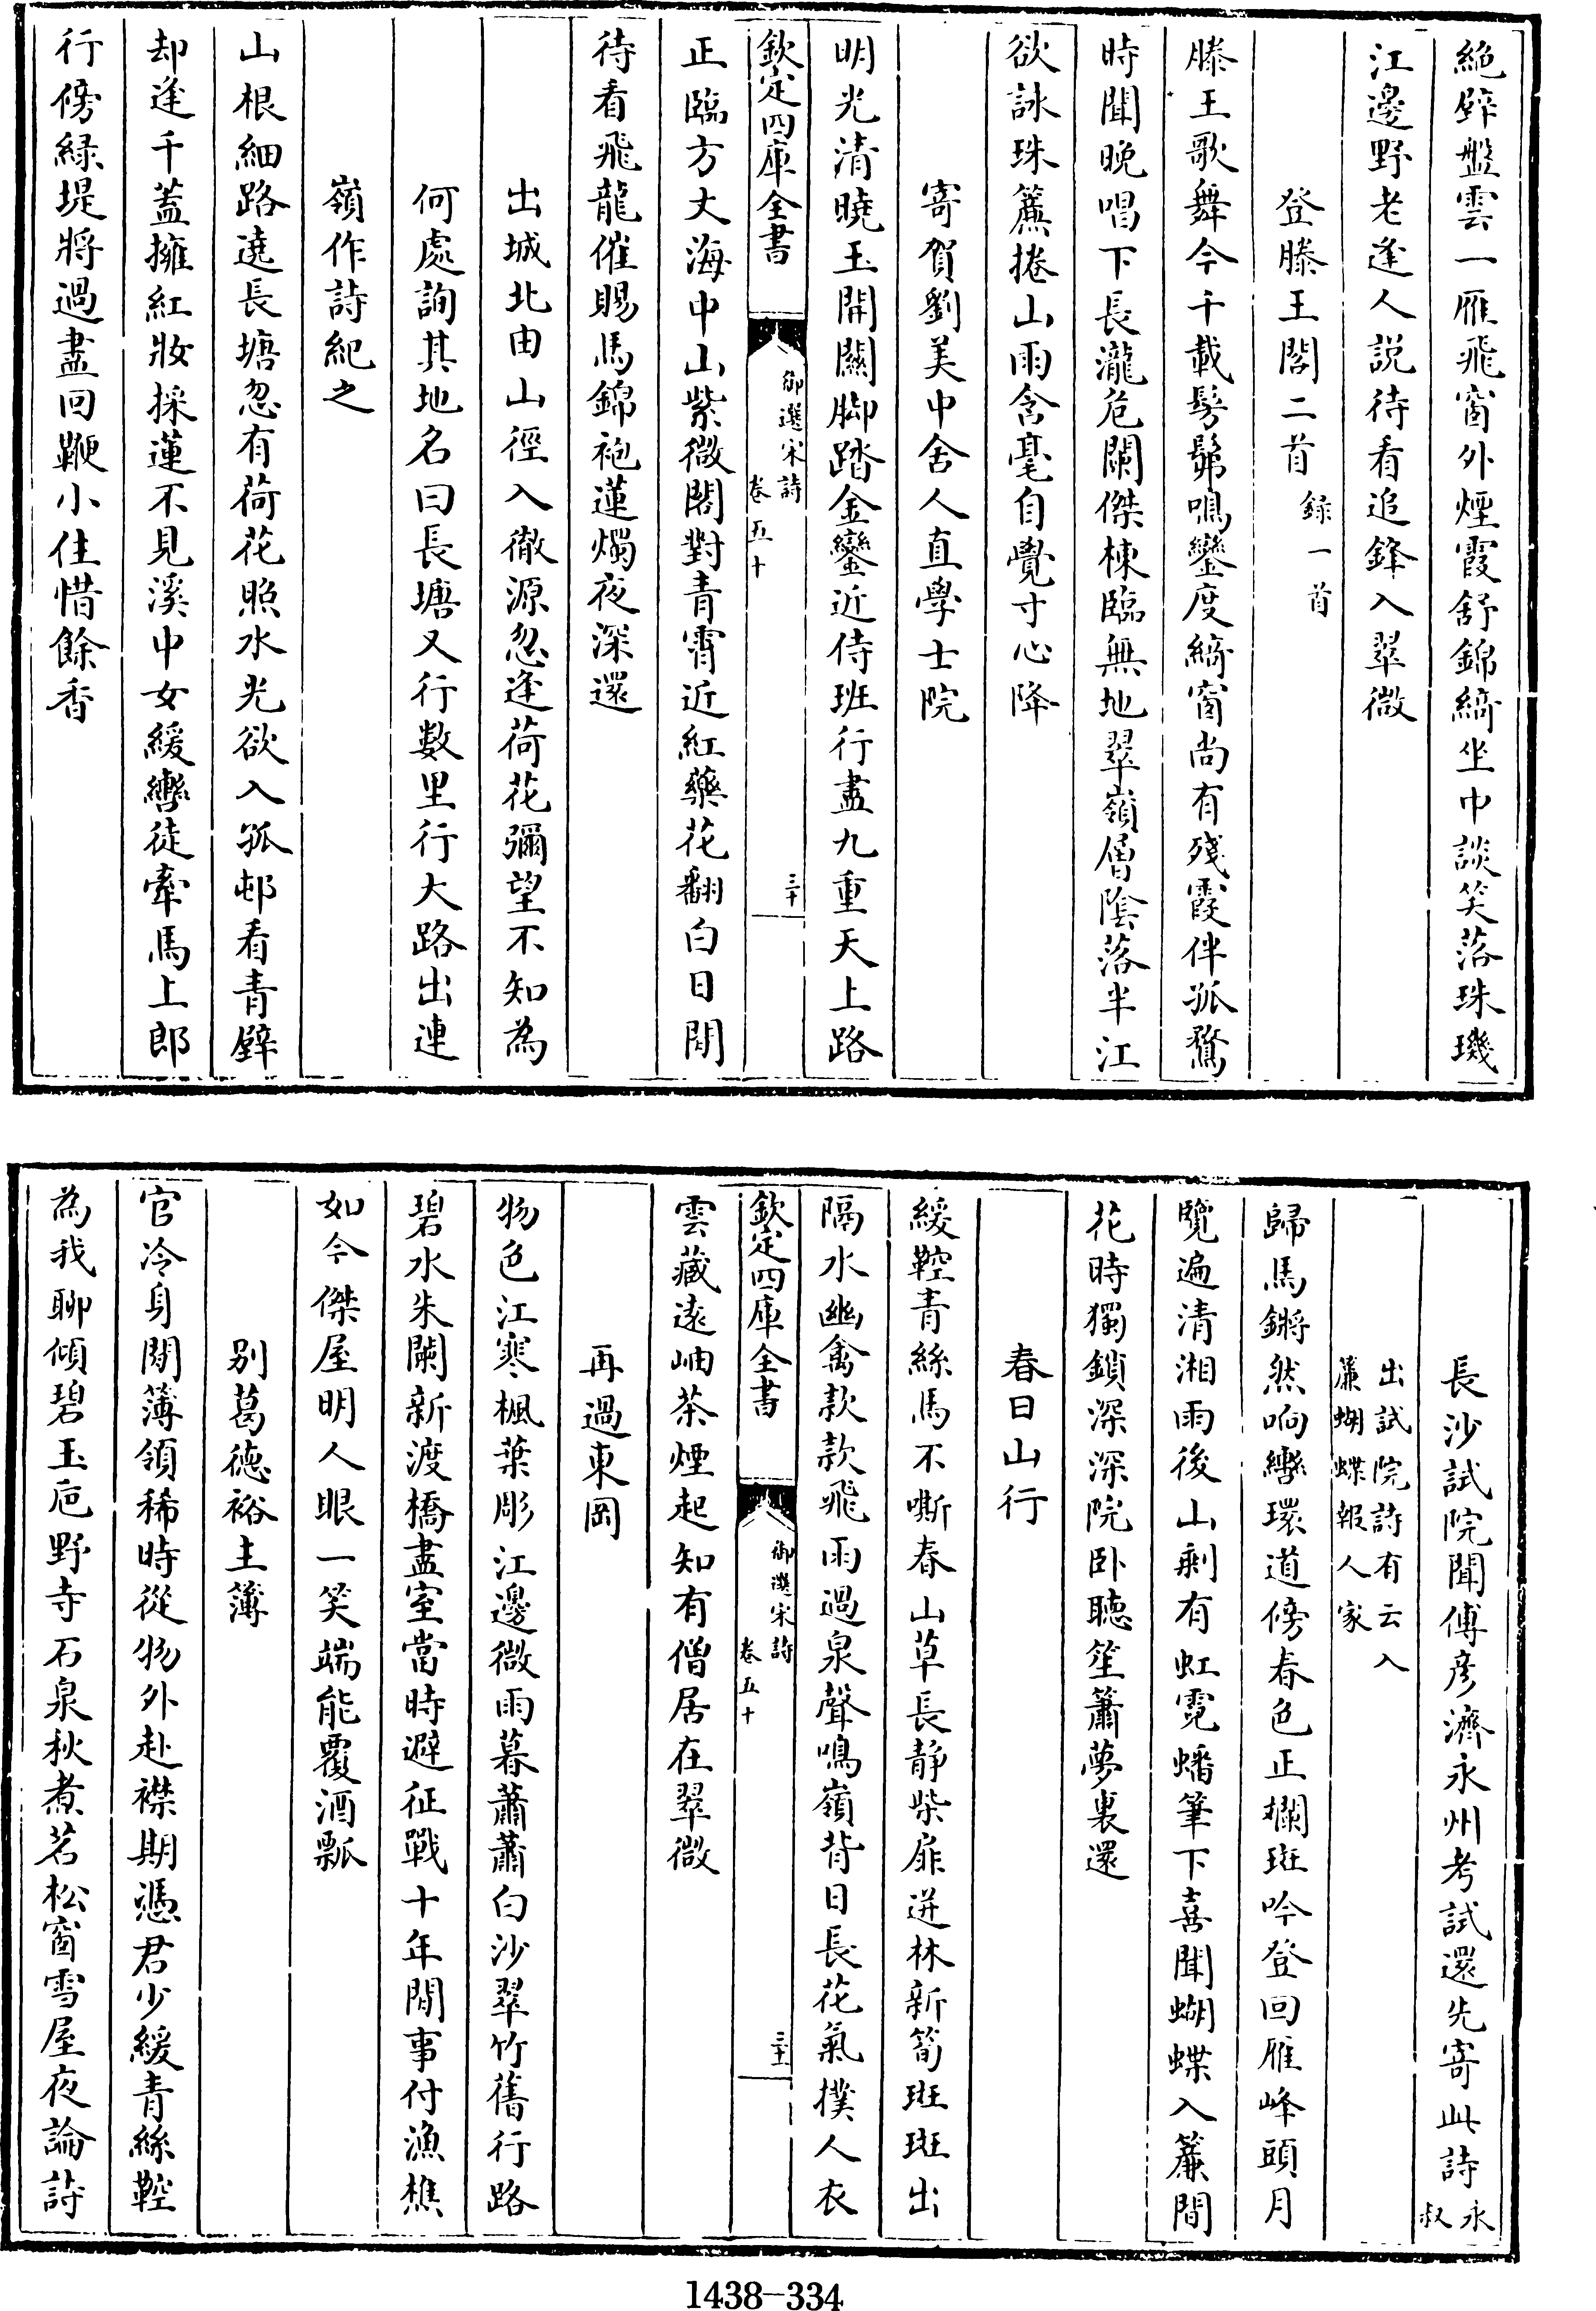 絶壁盤雲一雁飛窗外煙霞舒錦綺坐中談笑落珠璣
江邊野老逢人説待看追鋒入翠微
登滕王閣二首錄一首
滕王歌舞今千載髣髴鳴鑾度綺窗尚有殘霞伴孤鶩
時聞晚唱下長瀧危闌傑棟臨無地翠嶺層陰落半江
欲詠珠簾捲山雨含毫自覺寸心降
寄賀劉美中舍人直學士院
明光清曉玉開關脚踏金鑾近侍班行盡九重天上路
欽定四庫全書
御選宋詩
卷五十
三十
正臨方丈海中山紫微閣對青霄近紅藥花翻白日閒
待看飛龍催賜馬錦袍蓮燭夜深還
出城北由山徑入徹源忽逢荷花彌望不知為
何處詢其地名曰長塘又行數里行大路出連
嶺作詩紀之
山根細路遶長塘忽有荷花照水光欲入孤邨看青壁
却逢千蓋擁紅妝採蓮不見溪中女緩轡徒牽馬上郎
行傍緑堤將過盡回鞭小住惜餘香
長沙試院聞傅彥濟永州考試還先寄此詩永叔
出試院詩有云入
簾蝴蝶報人家
歸馬鏘然响轡環道傍春色正斕斑吟登回雁峰頭月
覽遍清湘雨後山剩有虹霓蟠筆下喜聞蝴蝶入簾間
花時獨鎖深深院卧聴笙簫夢裏還
春日山行
緩鞚青絲馬不嘶春山草長静柴扉迸林新筍斑斑出
隔水幽禽款款飛雨過泉聲鳴嶺背日長花氣撲人衣
欽定四庫全書
御選宋詩
卷五十
三十一
雲藏遠岫茶煙起知有僧居在翠微
再過東岡
物色江寒楓葉彫江邊微雨暮蕭蕭白沙翠竹舊行路
碧水朱闌新渡橋盡室當時避征戰十年閒事付漁樵
如今傑屋明人眼一笑端能覆酒瓢
别葛德裕主簿
官冷身閒簿領稀時從物外赴襟期憑君少緩青絲鞚
為我聊傾碧玉巵野寺石泉秋煮茗松窗雪屋夜論詩
1438-334